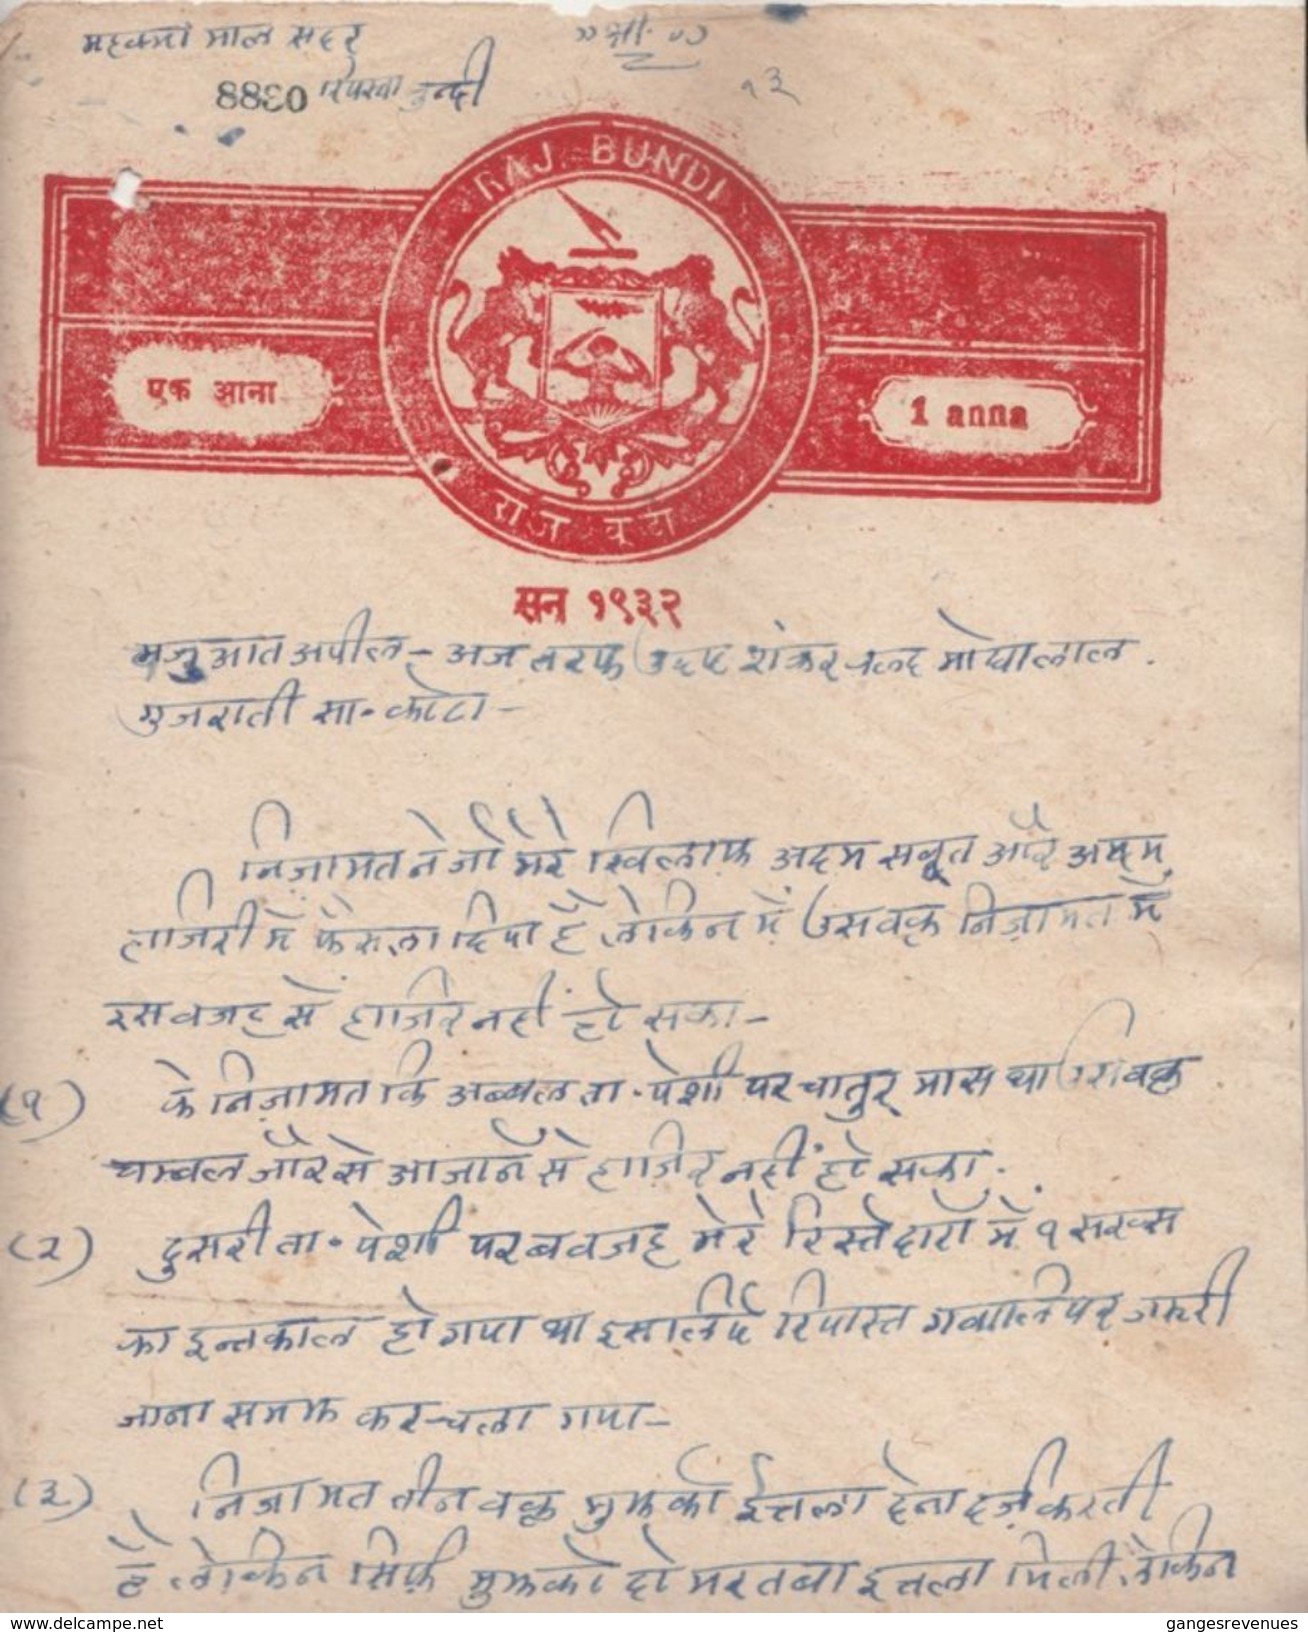 महकमा माल सदर
॥श्री॥
8830 रियासत बुन्दी
१३
RAJ BUNDI
एक आना
1 anna
राज बून्दी
सन १९३२
मजुआत अपील - अज तरफ उदय शंकर वल्द मोघालाल .
गुजराती सा॰ कोटा -
निज़ामत ने जो मेरे खिलाफ़ अदम सबूत और अदम
हाजिरी में फैसला दिया है लेकिन में उसवक्त निज़ामत में
इस वजह सें हाजिर नहीं हो सका -
(१) के निज़ामत कि अव्वल ता॰ पेशी पर चातुर् मास था उसवक्त
चम्बल जौर से आजाने से हाज़िर नहीं हो सका .
(२) दुसरी ता॰ पेशी पर बवजह मेरे रिस्तेदारों में १ सख्स
का इन्तकाल हो गया था इसलिये रियास्त गवालियर जरूरी
जाना समझ कर चला गया -
(३) निजामत तीन वक्त मुझको ईत्तला देना दर्ज़ करती
है लेकिन सिर्फ़ मुझको दो मरतबा इत्तला मिली लेकिन
www.delcampe.net
gangesrevenues